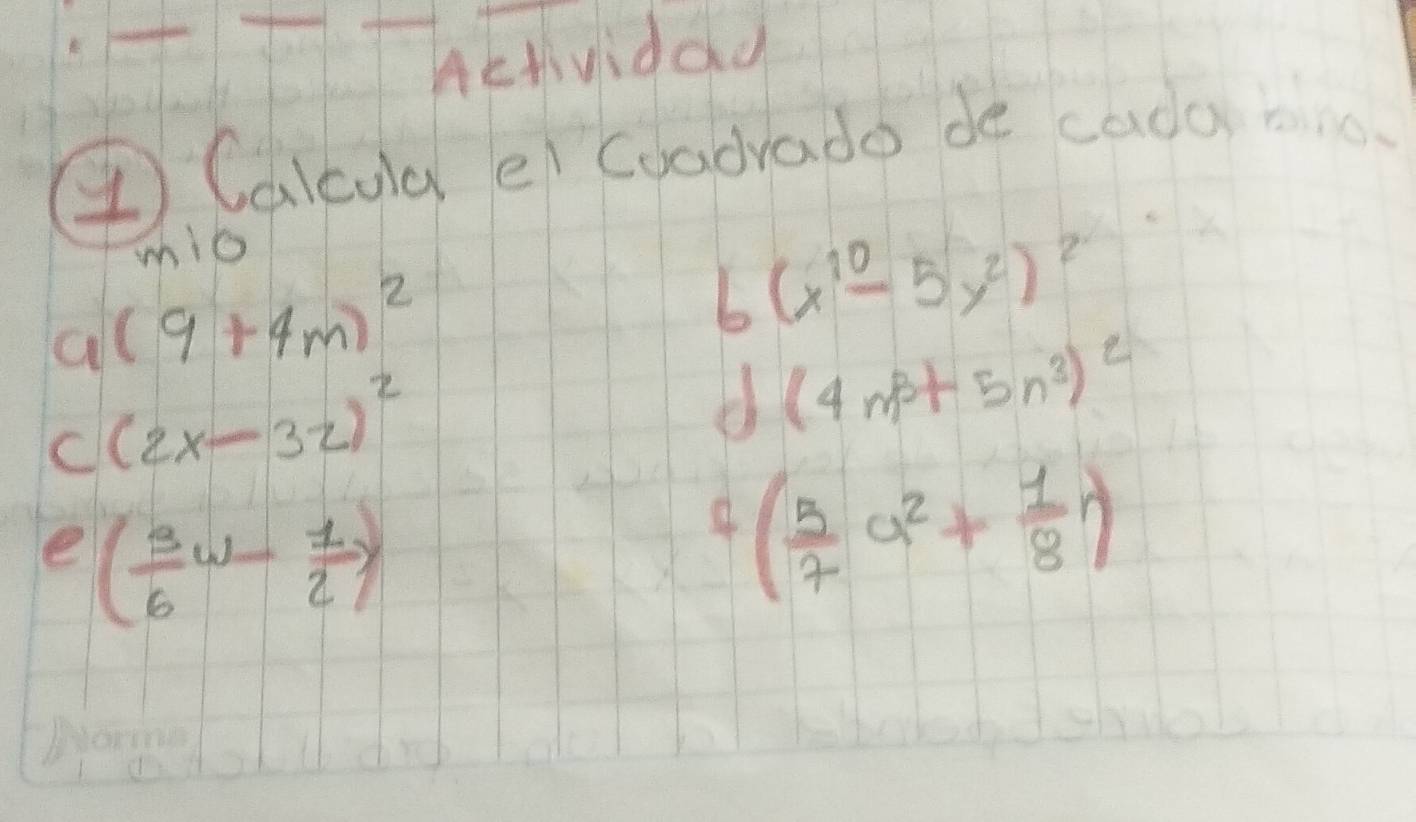 Actividad
① Calcula el cuadrado de cada bino-
mio
a (9+4m)²
b (x¹⁰ - 5y²)²
c (2x - 3z)²
d (4m³ + 5n³)²
e (3/6 w - 1/2 y)
f (5/7 a² + 1/8 n)